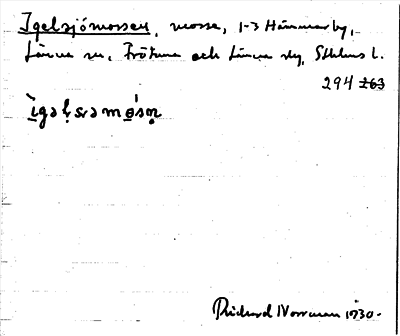 Igelsjömossen, mosse, 1-3 Hammarby,
Länna sn, Frötuna och Länna sklg, Sthlms l.
294 263
ìgəl̥sɩəmøsən̥
Rickard Norrman 1930.